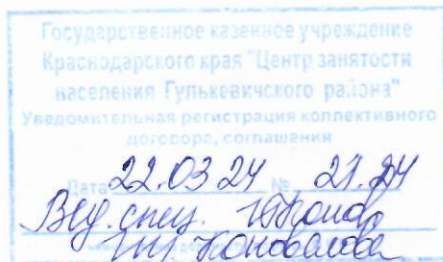 Государственное казенное учреждение
Краснодарского края "Центр занятости
населения Гулькевичского района"
Уведомительная регистрация коллективного
договора, соглашения
Дата 22.03.24 №
Вед. спец.
Коновалова